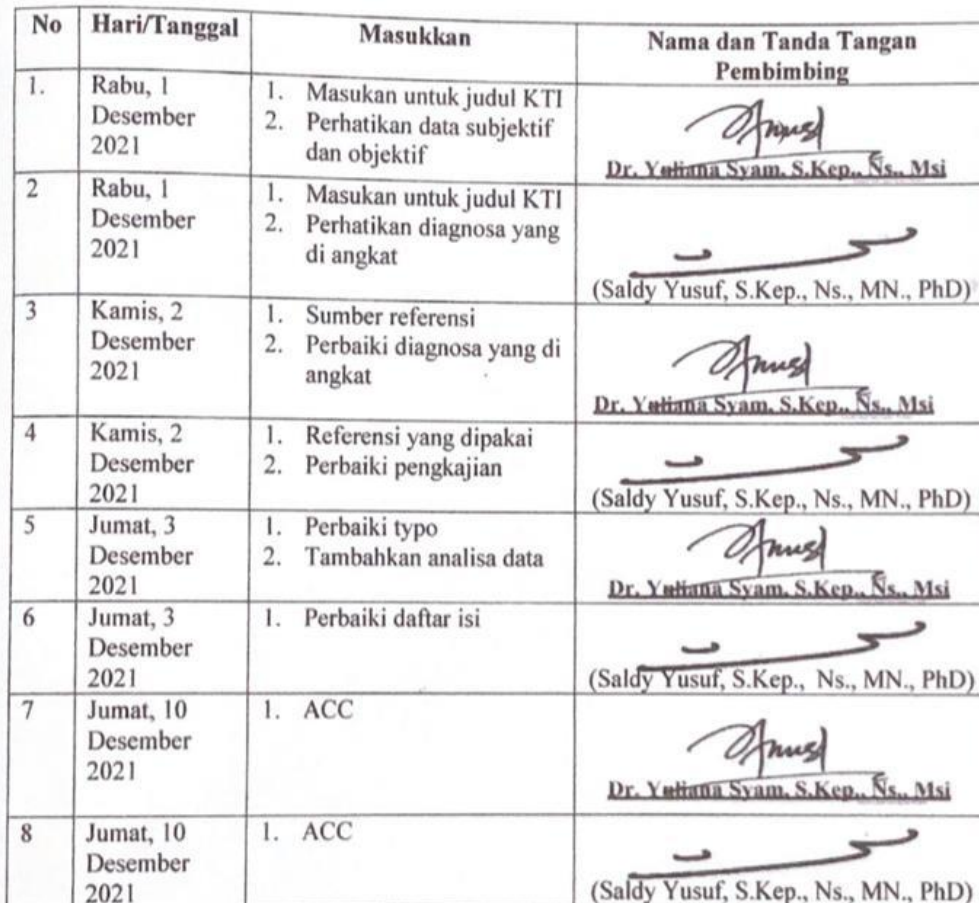 No Hari/Tanggal Masukkan Nama dan Tanda Tangan
Pembimbing
1. Rabu, 1
Desember
2021
1. Masukan untuk judul KTI
2. Perhatikan data subjektif
dan objektif
Dr. Yuliana Syam, S.Kep., Ns., Msi
2 Rabu, 1
Desember
2021
1. Masukan untuk judul KTI
2. Perhatikan diagnosa yang
di angkat
(Saldy Yusuf, S.Kep., Ns., MN., PhD)
3 Kamis, 2
Desember
2021
1. Sumber referensi
2. Perbaiki diagnosa yang di
angkat
Dr. Yuliana Syam, S.Kep., Ns., Msi
4 Kamis, 2
Desember
2021
1. Referensi yang dipakai
2. Perbaiki pengkajian
(Saldy Yusuf, S.Kep., Ns., MN., PhD)
5 Jumat, 3
Desember
2021
1. Perbaiki typo
2. Tambahkan analisa data
Dr. Yuliana Syam, S.Kep., Ns., Msi
6 Jumat, 3
Desember
2021
1. Perbaiki daftar isi
(Saldy Yusuf, S.Kep., Ns., MN., PhD)
7 Jumat, 10
Desember
2021
1. ACC
Dr. Yuliana Syam, S.Kep., Ns., Msi
8 Jumat, 10
Desember
2021
1. ACC
(Saldy Yusuf, S.Kep., Ns., MN., PhD)